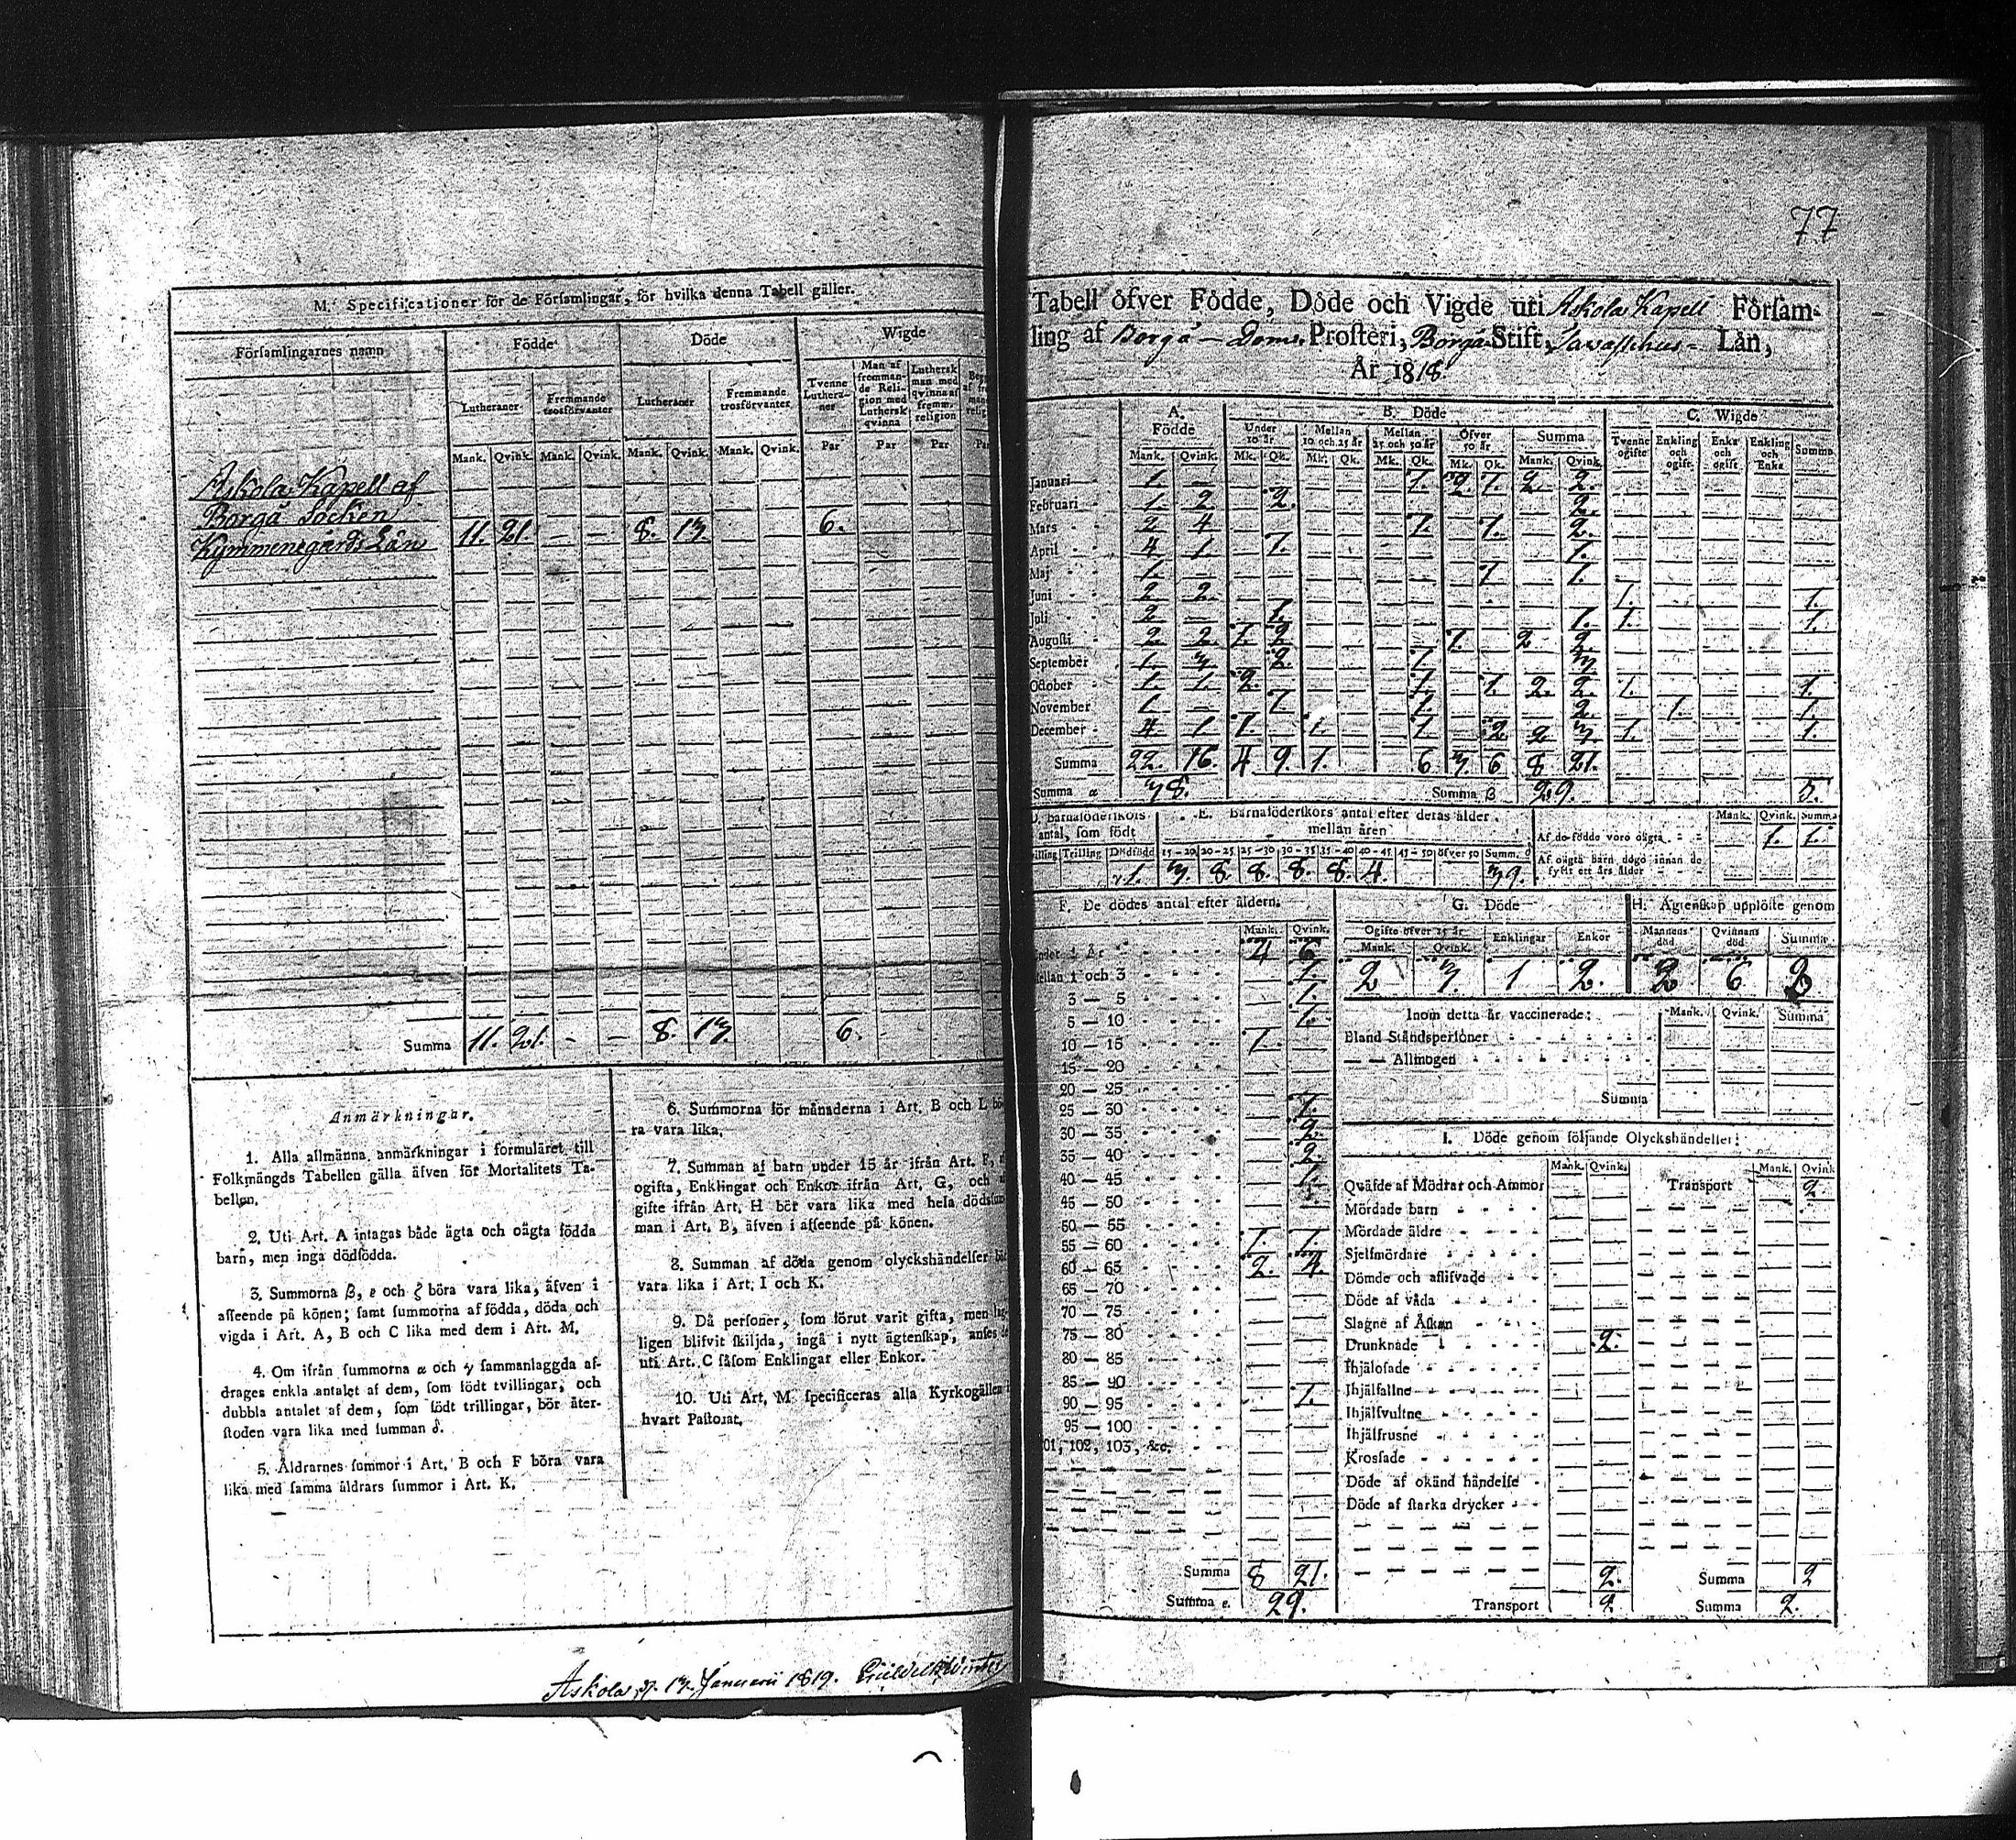 M. Specificationer för de Församlingar, för hvilka denna Tabell gäller.
Församlingarnes namn
Födde
Döde
Wigde
Lutheraner
Fremmande trosförvanter
Lutheraner
Fremmande trosförvanter
Tvenne Lutheraner
Man af fremmande Religion med Luthersk qvinna
Luthersk man med qvinna af fremm. religion
Mank. Qvink. Mank. Qvink. Mank. Qvink. Mank. Qvink. Par Par Par
Askola Kapell af
Borgå Socken
Kymmenegårds Län 11. 21. — — 8. 13. — — 6.
Summa 11. 21. - — 8. 13. 6.
Anmärkningar.
1. Alla allmänna anmärkningar i formuläret till
Folkmängds Tabellen gälla äfven för Mortalitets Ta-
bellen.
2. Uti Art. A intagas både ägta och oägta födda
barn, men inga dödfödda.
3. Summorna β, ε och ζ böra vara lika, äfven i
afseende på könen; samt summorna af födda, döda och
vigda i Art. A, B och C lika med dem i Art. M.
4. Om ifrån summorna α och γ sammanlaggda af-
drages enkla antalet af dem, som födt tvillingar, och
dubbla antalet af dem, som födt trillingar, bör åter-
stoden vara lika med summan δ.
5. Åldrarnes summor i Art. B och F böra vara
lika med samma åldrars summor i Art. K.
6. Summorna för månaderna i Art. B och L bö-
ra vara lika.
7. Summan af barn under 15 år ifrån Art. F,
ogifta, Enklingar och Enkor ifrån Art. G, och
gifte ifrån Art. H bör vara lika med hela dödssum-
man i Art. B, äfven i afseende på könen.
8. Summan af döda genom olyckshändelser bör
vara lika i Art. I och K.
9. Då personer, som förut varit gifta, men
ligen blifvit skiljda, ingå i nytt ägtenskap, anses de
uti Art. C såsom Enklingar eller Enkor.
10. Uti Art. M specificeras alla Kyrkogällen i
hvart Pastorat.
Askola d. 13. Januarii 1819.
77
Tabell öfver Födde, Döde och Vigde uti Askola Kapell Försam-
ling af Borgå - Doms. Prosteri, Borgå Stift, Tavasthus - Län,
År 1818.
A. Födde
B. Döde
C. Wigde
Under 10 år
Mellan 10 och 25 år
Mellan 25 och 50 år
Öfver 50 år
Summa
Tvenne ogifte
Enkling och ogift
Enka och ogift
Enkling och Enka
Summa
Mank. Qvink. Mk. Qk. Mk. Qk. Mk. Qk. Mk. Qk. Mank. Qvink.
Januari 1. — 1. 2. 1. 2. 2.
Februari 1. 2. 2. 2.
Mars 2 4 1. 1. 2.
April 4. 1. 1. 1.
Maj 1. — 1 1.
Juni 2 2. 1. 1.
Juli 2. — 1. 1. 1. 1.
Augusti 2. 2 1. 2. 1. 2 2.
September 1. 3 2. 1. 3.
October 1. 1. 2. 1. 1. 2. 2. 1. 1.
November 1. — 1. 1. 2. 1. 1.
December 4 1 1. 1. 1. 2 2 3 1. 1.
Summa 22. 16. 4 9. 1. 6 3 6 8 21.
Summa α 38. Summa β 29. 5.
D. Barnaföderskors antal, som födt
Tvilling Trilling Dödfödd
1.
E. Barnaföderskors antal efter deras ålder mellan åren
15—20 20—25 25—30 30—35 35—40 40—45 45—50 öfver 50 Summ. δ
3. 8. 8. 8. 8. 4. 39.
Mank. Qvink. Summa
Af de födde voro oägta 1. 1.
Af oägta barn dogo innan de fyllt ett års ålder
F. De dödes antal efter åldern.
Mank. Qvink.
Under 1 år 4 6
Mellan 1 och 3 1.
3 — 5 1.
5 — 10 1.
10 — 15 1.
15 — 20
20 — 25
25 — 30 1.
30 — 35 2.
35 — 40 2.
40 — 45 1.
45 — 50
50 — 55
55 — 60 1. 1.
60 — 65 2. 4.
65 — 70
70 — 75
75 — 80
80 — 85
85 — 90
90 — 95 1.
95 — 100
101, 102, 103, &c.
Summa 8 21.
Summa ε. 29.
G. Döde
Ogifte öfver 15 år
Mank. Qvink. Enklingar Enkor
2 3. 1 2.
H. Ägtenskap upplöste genom
Mannens död Qvinnans död Summa
2 6 8
Inom detta år vaccinerade: Mank. Qvink. Summa
Bland Ståndspersoner
— — Allmogen
Summa
I. Döde genom följande Olyckshändelser:
Mank. Qvink. Mank. Qvink
Qväfde af Mödrar och Ammor Transport 2.
Mördade barn
Mördade äldre
Sjelfmördare
Dömde och aflifvade
Döde af våda
Slagne af Åskan
Drunknade 2.
Ihjälosade
Ihjälfallne
Ihjälsvultne
Ihjälfrusne
Krossade
Döde af okänd händelse
Döde af starka drycker
2. Summa 2
Transport 2. Summa 2.